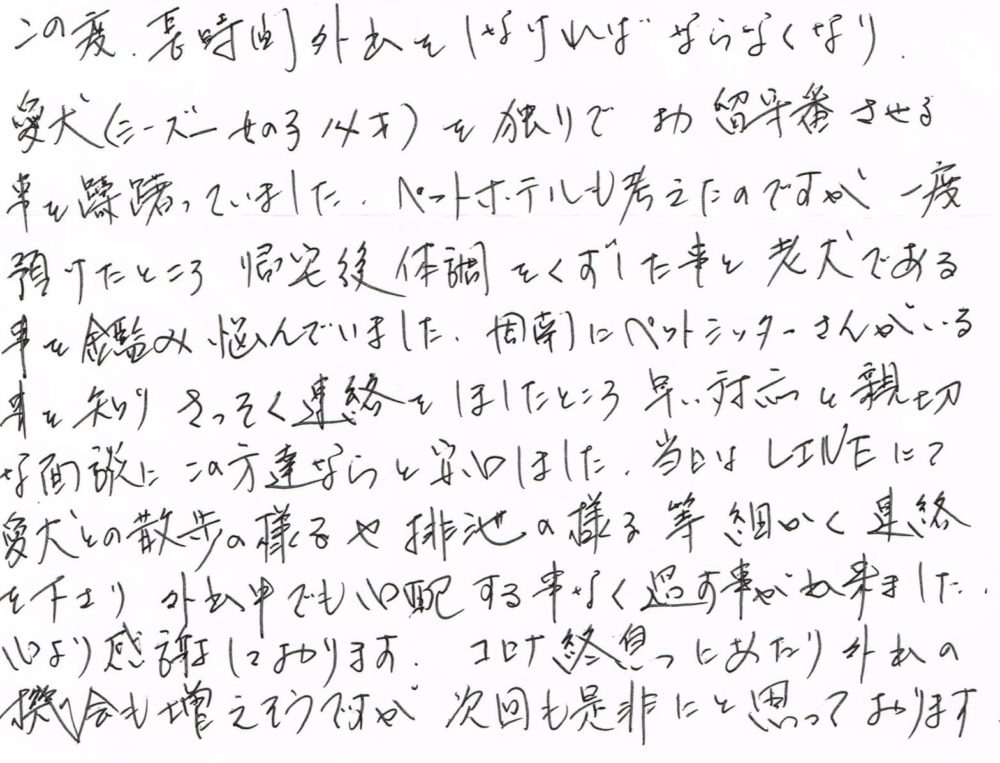 この度、長時間外出をしなければならなくなり、
愛犬(シーズー女の子14才)を独りでお留守番させる
事を躊躇っていました。ペットホテルも考えたのですが一度
預けたところ帰宅後体調をくずした事と老犬である
事を鑑み悩んでいました。周南にペットシッターさんがいる
事を知りさっそく連絡をしましたところ早い対応と親切
な面談にこの方達ならと安心しました。当日はLINEにて
愛犬との散歩の様子や排泄の様子等細かく連絡
を下さり外出中でも心配する事なく過す事が出来ました。
心より感謝しております。コロナ終息にあたり外出の
機会も増えそうですが次回も是非にと思っております。